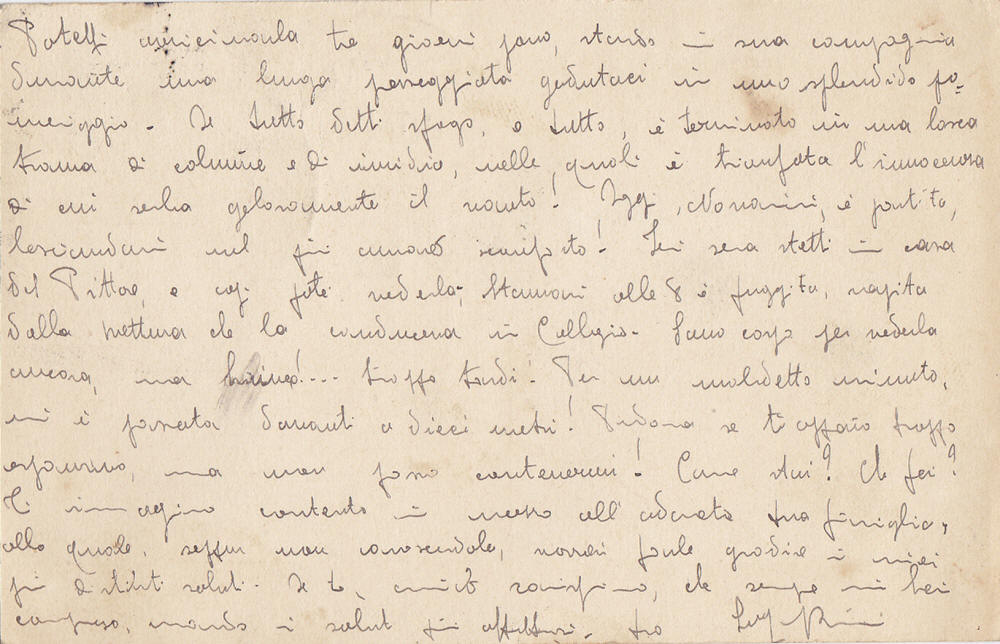 Potetti avvicinarla tre giorni fano, stando in sua compagnia
durante una lunga passeggiata godutaci in uno splendido po-
meriggio. Se tutto detti sfogo, e tutto, è terminato in una losca
trama di calunnie e di invidia, nelle quali è trionfata l'innocenza
di cui serba gelosamente il vanto! Oggi, è partita,
lasciandomi nel più amaro sconforto! Ieri sera stetti in casa
del Pittore, e così potei vederla; stamani alle 8 è fuggita, rapita
dalla vettura che la conduceva in Collegio. Sono corso per vederla
ancora, ma troppo tardi! Per un maledetto minuto,
mi è passata davanti a dieci metri! Perdona se ti appaio troppo
espansivo, ma non posso contenermi! Come stai? Che fai?
Ti immagino contento in mezzo all'adorata tua famiglia,
alla quale, seppur non conoscendola, vorrei farle gradire i miei
più distinti saluti. E te, amico carissimo, che sempre mi hai
compreso, mando i saluti più affettuosi. tuo